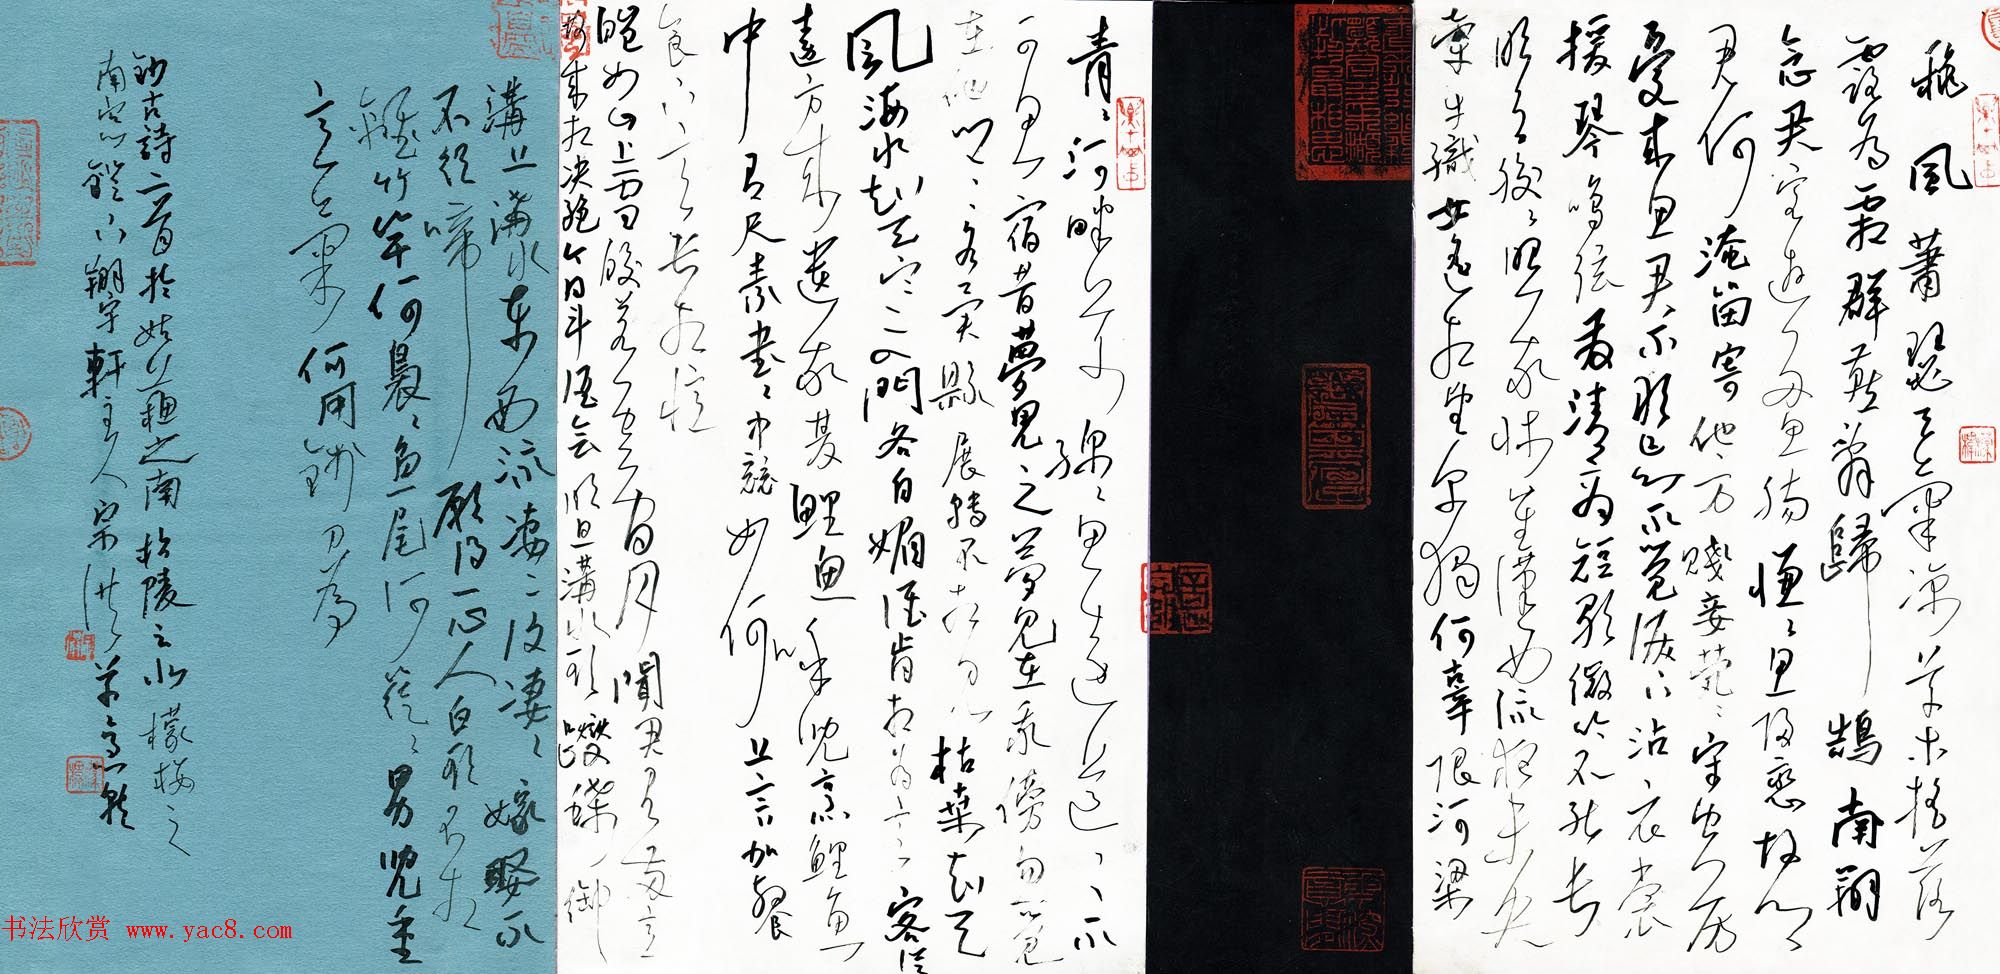 秋風蕭瑟天氣涼草木搖落
露為霜群燕辭歸鵠南翔
念君客遊多思腸慊〻思歸戀故鄉
君何淹留寄他方賤妾煢〻守空房
憂來思君不敢忘不覺淚下沾衣裳
援琴鳴弦發清商短歌微吟不能長
明月皎〻照我床星漢西流夜未央
牽牛織女遙相望爾獨何辜限河梁
青〻河畔草綿〻思遠道〻不
可思宿昔夢見之夢見在我傍勿覺
在他鄉〻各異縣展轉不相見枯桑知天
風海水知天寒入門各自媚誰肯相為言客從
遠方來遺我雙鯉魚呼兒烹鯉魚
中有尺素書〻中竟如何上言加餐
食下言長相憶
皚如山上雪皎若雲間月聞君有兩意
故來相決絕今日斗酒會明旦溝水頭躞蹀御
溝上溝水東西流淒〻復淒〻嫁娶不
須啼願得一心人白頭不相
離竹竿何裊〻魚尾何簁〻男兒重
意氣何用錢刀為
鈔古詩二首於姑蘇之南松陵之北檬梅之
南 下翱宇軒主人宋
书法欣赏 www.yac8.com